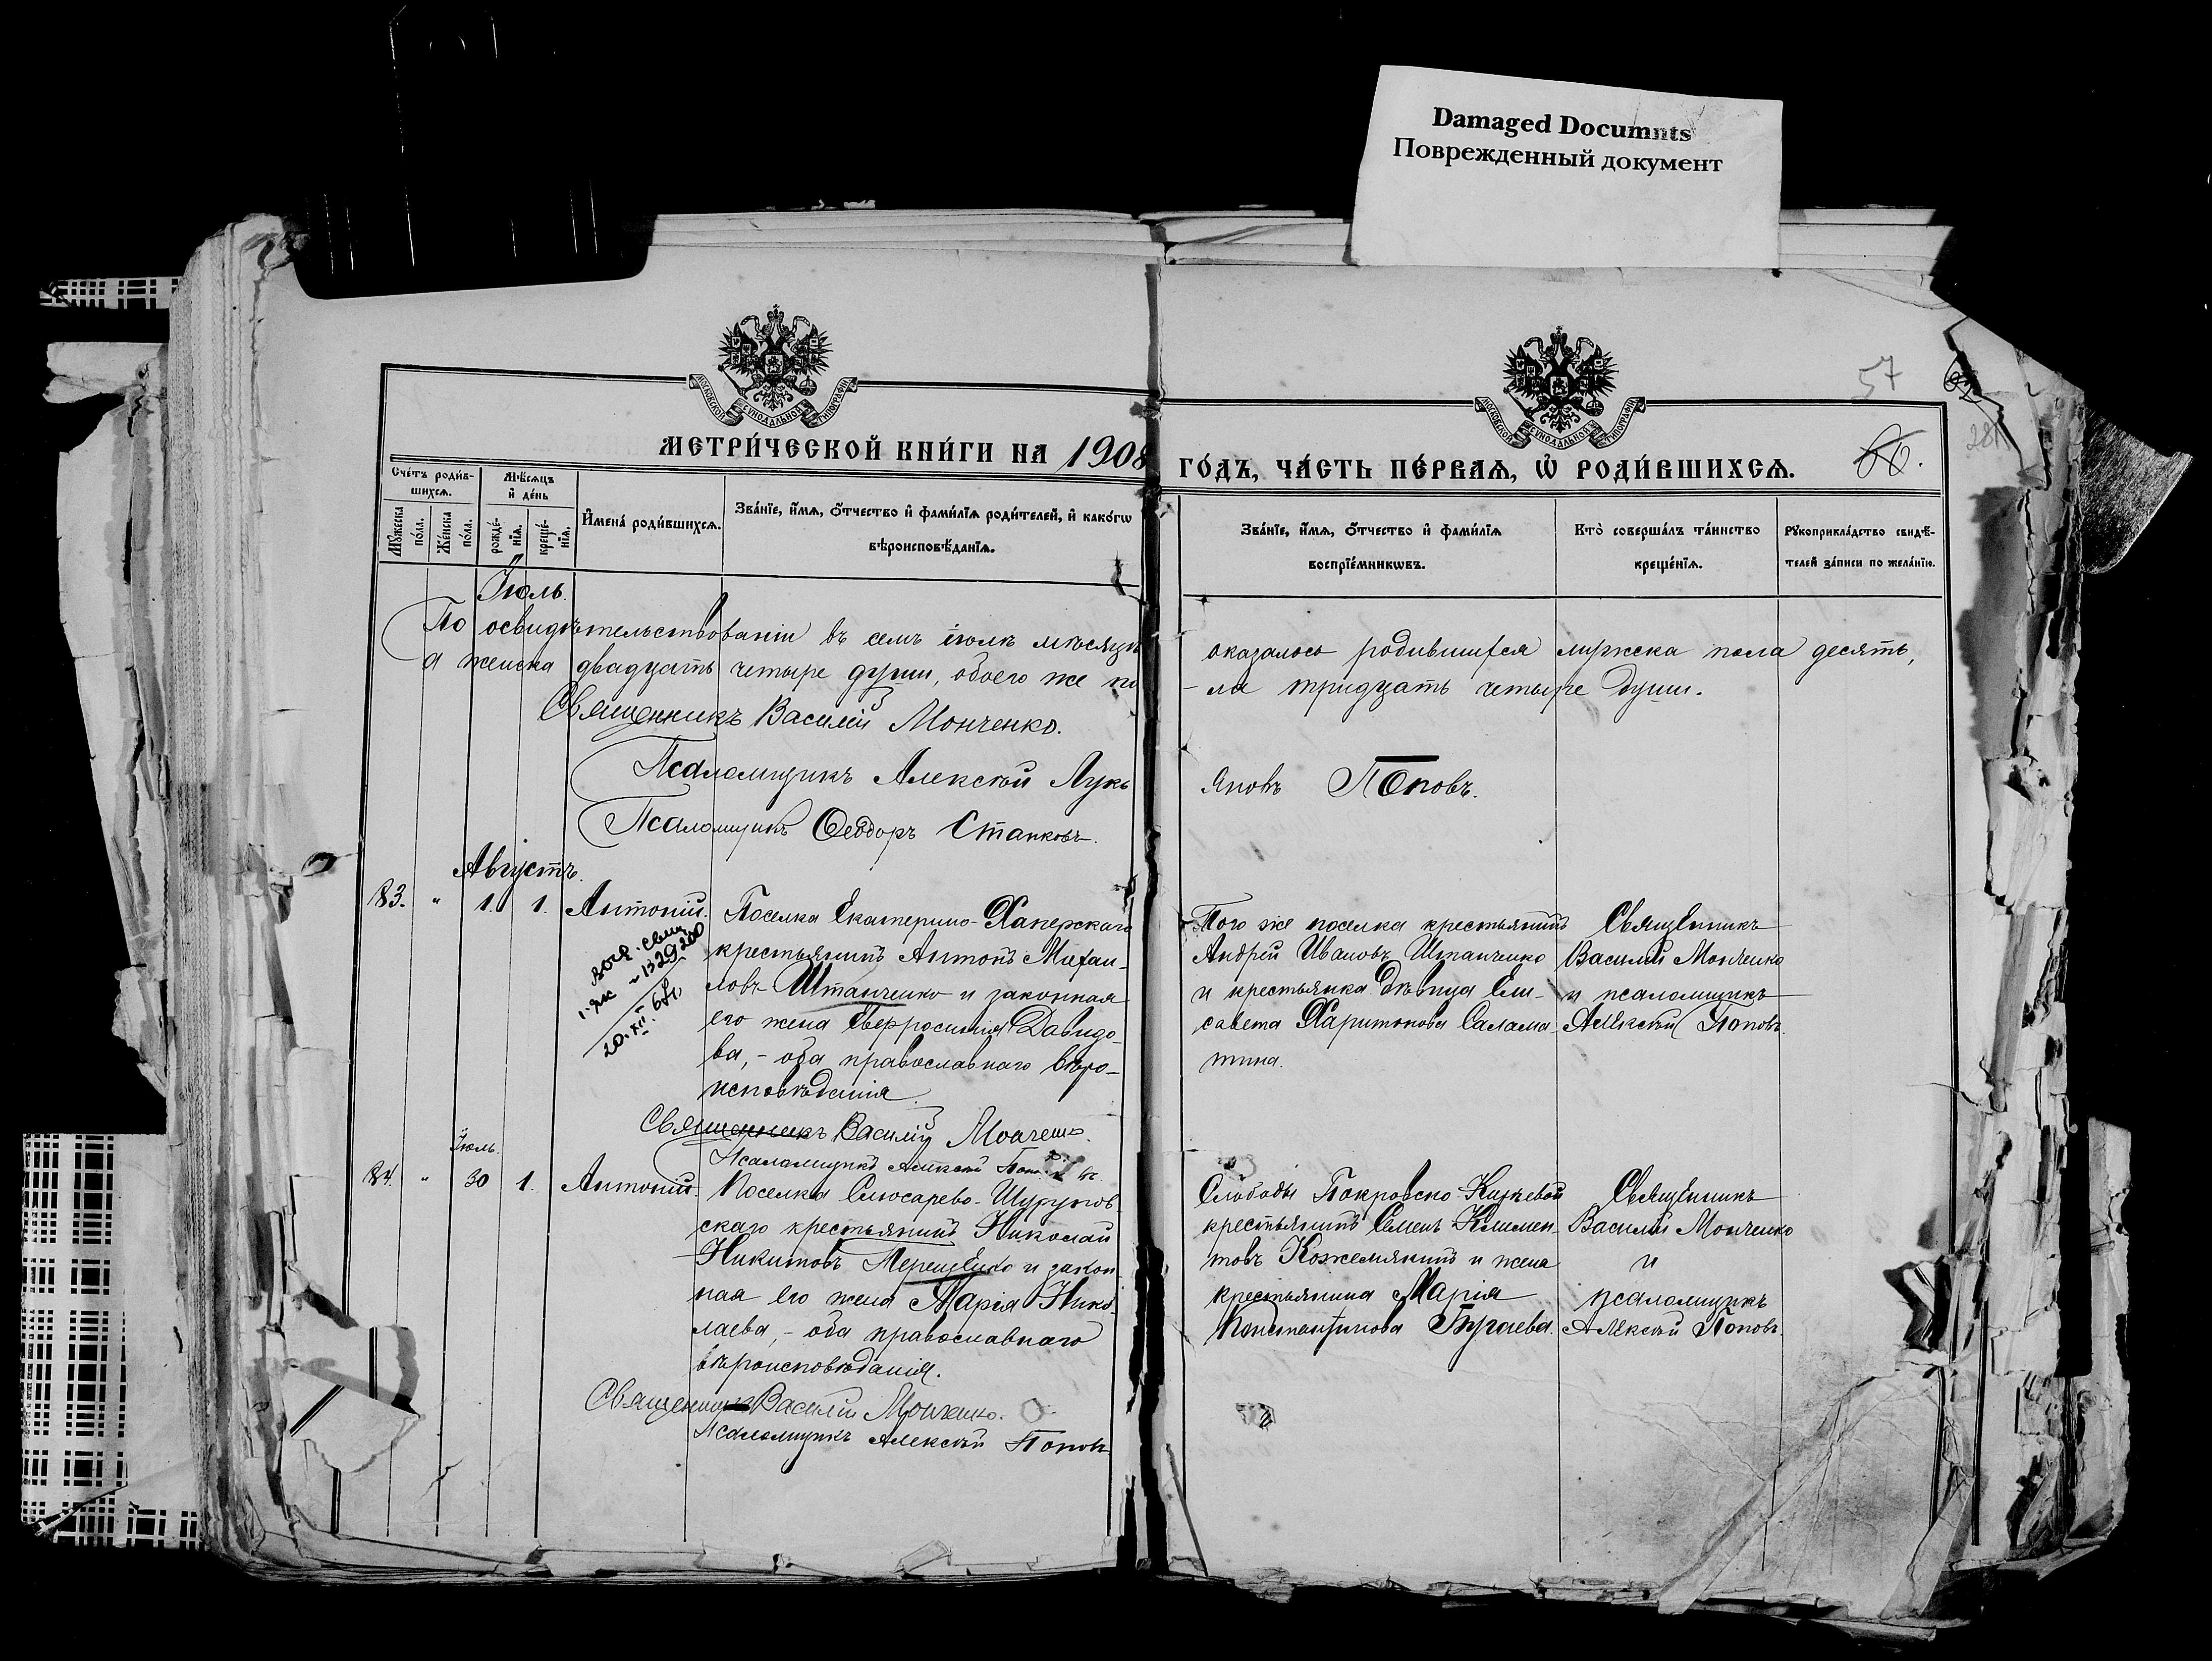 Damaged Documnts
Поврежденный документ
57
МОСКОВСКОЙ СѴНОДАЛЬНОЙ ТИПОГРАФІИ
МОСКОВСКОЙ СѴНОДАЛЬНОЙ ТИПОГРАФІИ
МЕТРИ́ЧЕСКОЙ КНИ́ГИ НА 1908 ГО́ДЪ, ЧА́СТЬ ПЕ́РВАѦ, Ѡ҆ РОДИ́ВШИХСѦ.
60.
281
Сче́тъ роди́в-
шихсѧ.
Мѣ́сѧцъ
и҆ де́нь
Мꙋ́жеска
по́ла.
Же́нска
по́ла.
рожде́-
нїѧ.
креще́-
нїѧ.
И҆мена̀ роди́вшихсѧ.
Зва́нїе, и҆́мѧ, ѻ҆́тчество и҆ фами́лїѧ роди́телей, и҆ како́гѡ
вѣроисповѣ́данїѧ.
Зва́нїе, и҆́мѧ, ѻ҆́тчество и҆ фами́лїѧ
воспрїе́мникѡвъ.
Кто̀ соверша́лъ та́инство
креще́нїѧ.
Рꙋкоприкла́дство свидѣ́-
телей за́писи по жела́нїю.
Іюль.
По освидѣтельствованіи въ семъ іюлѣ мѣсяцѣ оказалось родившихся мужска пола десять,
а женска двадцать четыре души, обоего же по-ла тридцать четыре души.
Священникъ Василій Монченко.
Псаломщикъ Алексѣй Лукьяновъ Поповъ.
Псаломщикъ Ѳеодоръ Станковъ.
Августъ.
83. " 1. 1. Антоній.
20.XII.67г.
Поселка Екатерино-Хаперскаго
крестьянинъ Антонъ Михаи-
ловъ Штанченко и законная
его жена Евфросинія Давидо-
ва, - оба православнаго вѣро-
исповѣданія.
Того же поселка крестьянинъ
Андрей Ивановъ Штанченко
и крестьянка дѣвица Ели-
савета Харитонова Салама-
тина.
Священникъ
Василій Монченко
и псаломщикъ
Алексѣй Поповъ.
Священникъ Василій Монченко.
Псаломщикъ Алексѣй Поповъ
Іюль.
84. " 30 1. Антоній.
Поселка Слюсарево-Шурупов-
скаго крестьянинъ Николай
Никитовъ Терещенко и закон-
ная его жена Марія Нико-
лаева, - оба православнаго
вѣроисповѣданія.
Слободы Покровско-Кирѣевой
крестьянинъ Семенъ Климен-
товъ Кожемякинъ и жена
крестьянина Марія
Константинова Бугаева.
Священникъ
Василій Монченко
и
псаломщикъ
Алексѣй Поповъ.
Священникъ Василій Монченко.
Псаломщикъ Алексѣй Поповъ